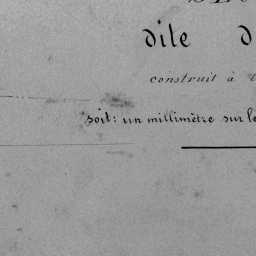 dite
construit à
soit: un millimètre sur le